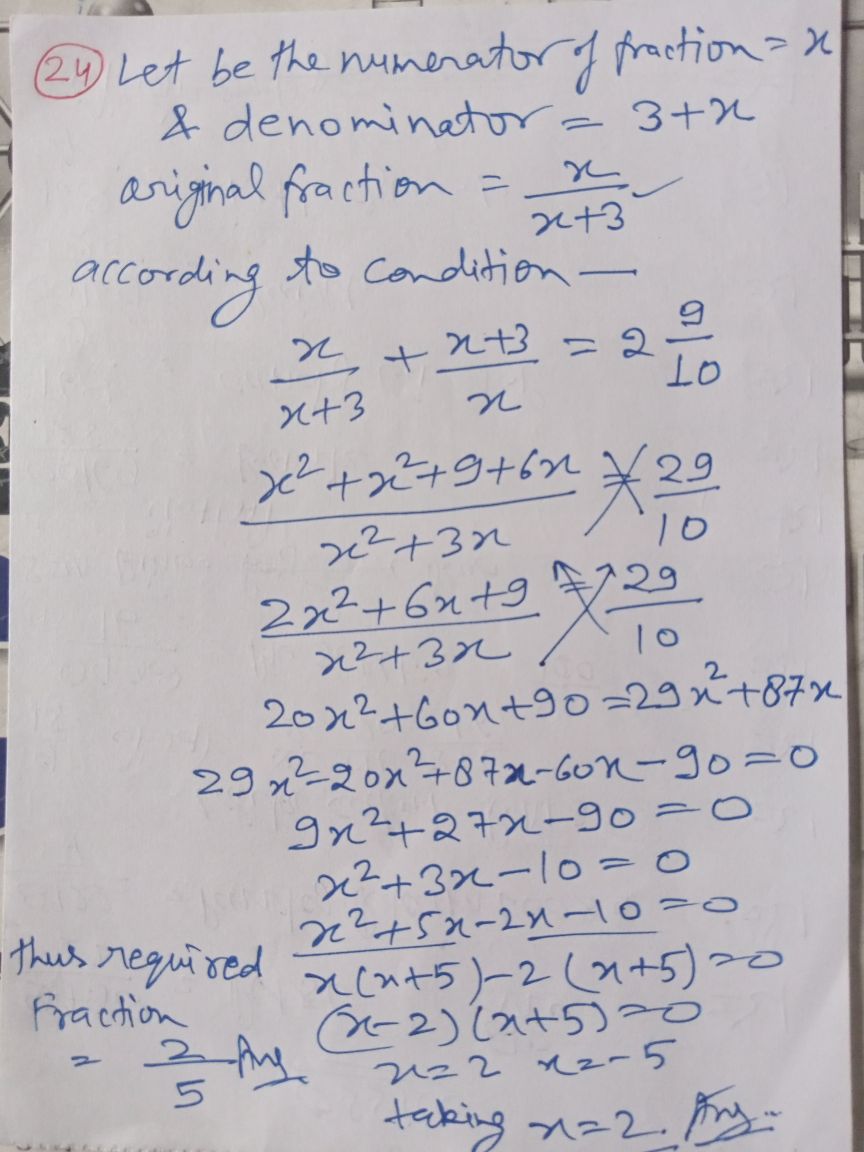 24 Let be the numerator of fraction = x
& denominator = 3+x
original fraction = x/(x+3)
according to condition —
x/(x+3) + (x+3)/x = 2 9/10
(x²+x²+9+6x)/(x²+3x) = 29/10
(2x²+6x+9)/(x²+3x) = 29/10
20x²+60x+90 = 29x²+87x
29x²-20x²+87x-60x-90=0
9x²+27x-90=0
x²+3x-10=0
x²+5x-2x-10=0
x(x+5)-2(x+5)=0
(x-2)(x+5)=0
x=2 x=-5
taking x=2. Ans..
thus required
Fraction
= 2/5 Ans